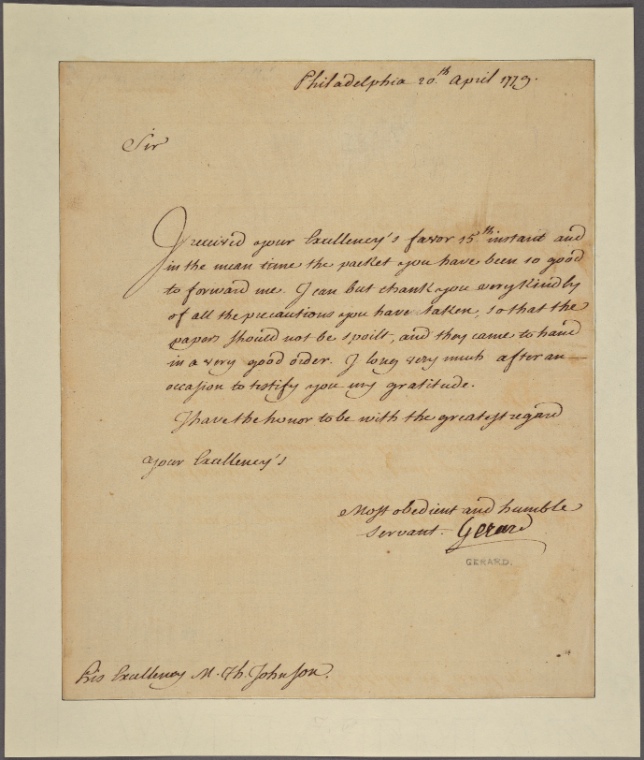 Philadelphia 20th April 1779.
Sir
I received your Excellency's favor 15th instant and
in the mean time the packet you have been so good
to forward me. I can but thank you very kindly
of all the precautions you have taken, so that the
papers should not be spoilt, and they came to hand
in a very good order. I long very much after an
occasion to testify you my gratitude.
I have the honor to be with the greatest regard
your Excellency's
Most obedient and humble
servant. Gerard
GERARD.
His Excellency M. Th. Johnson.